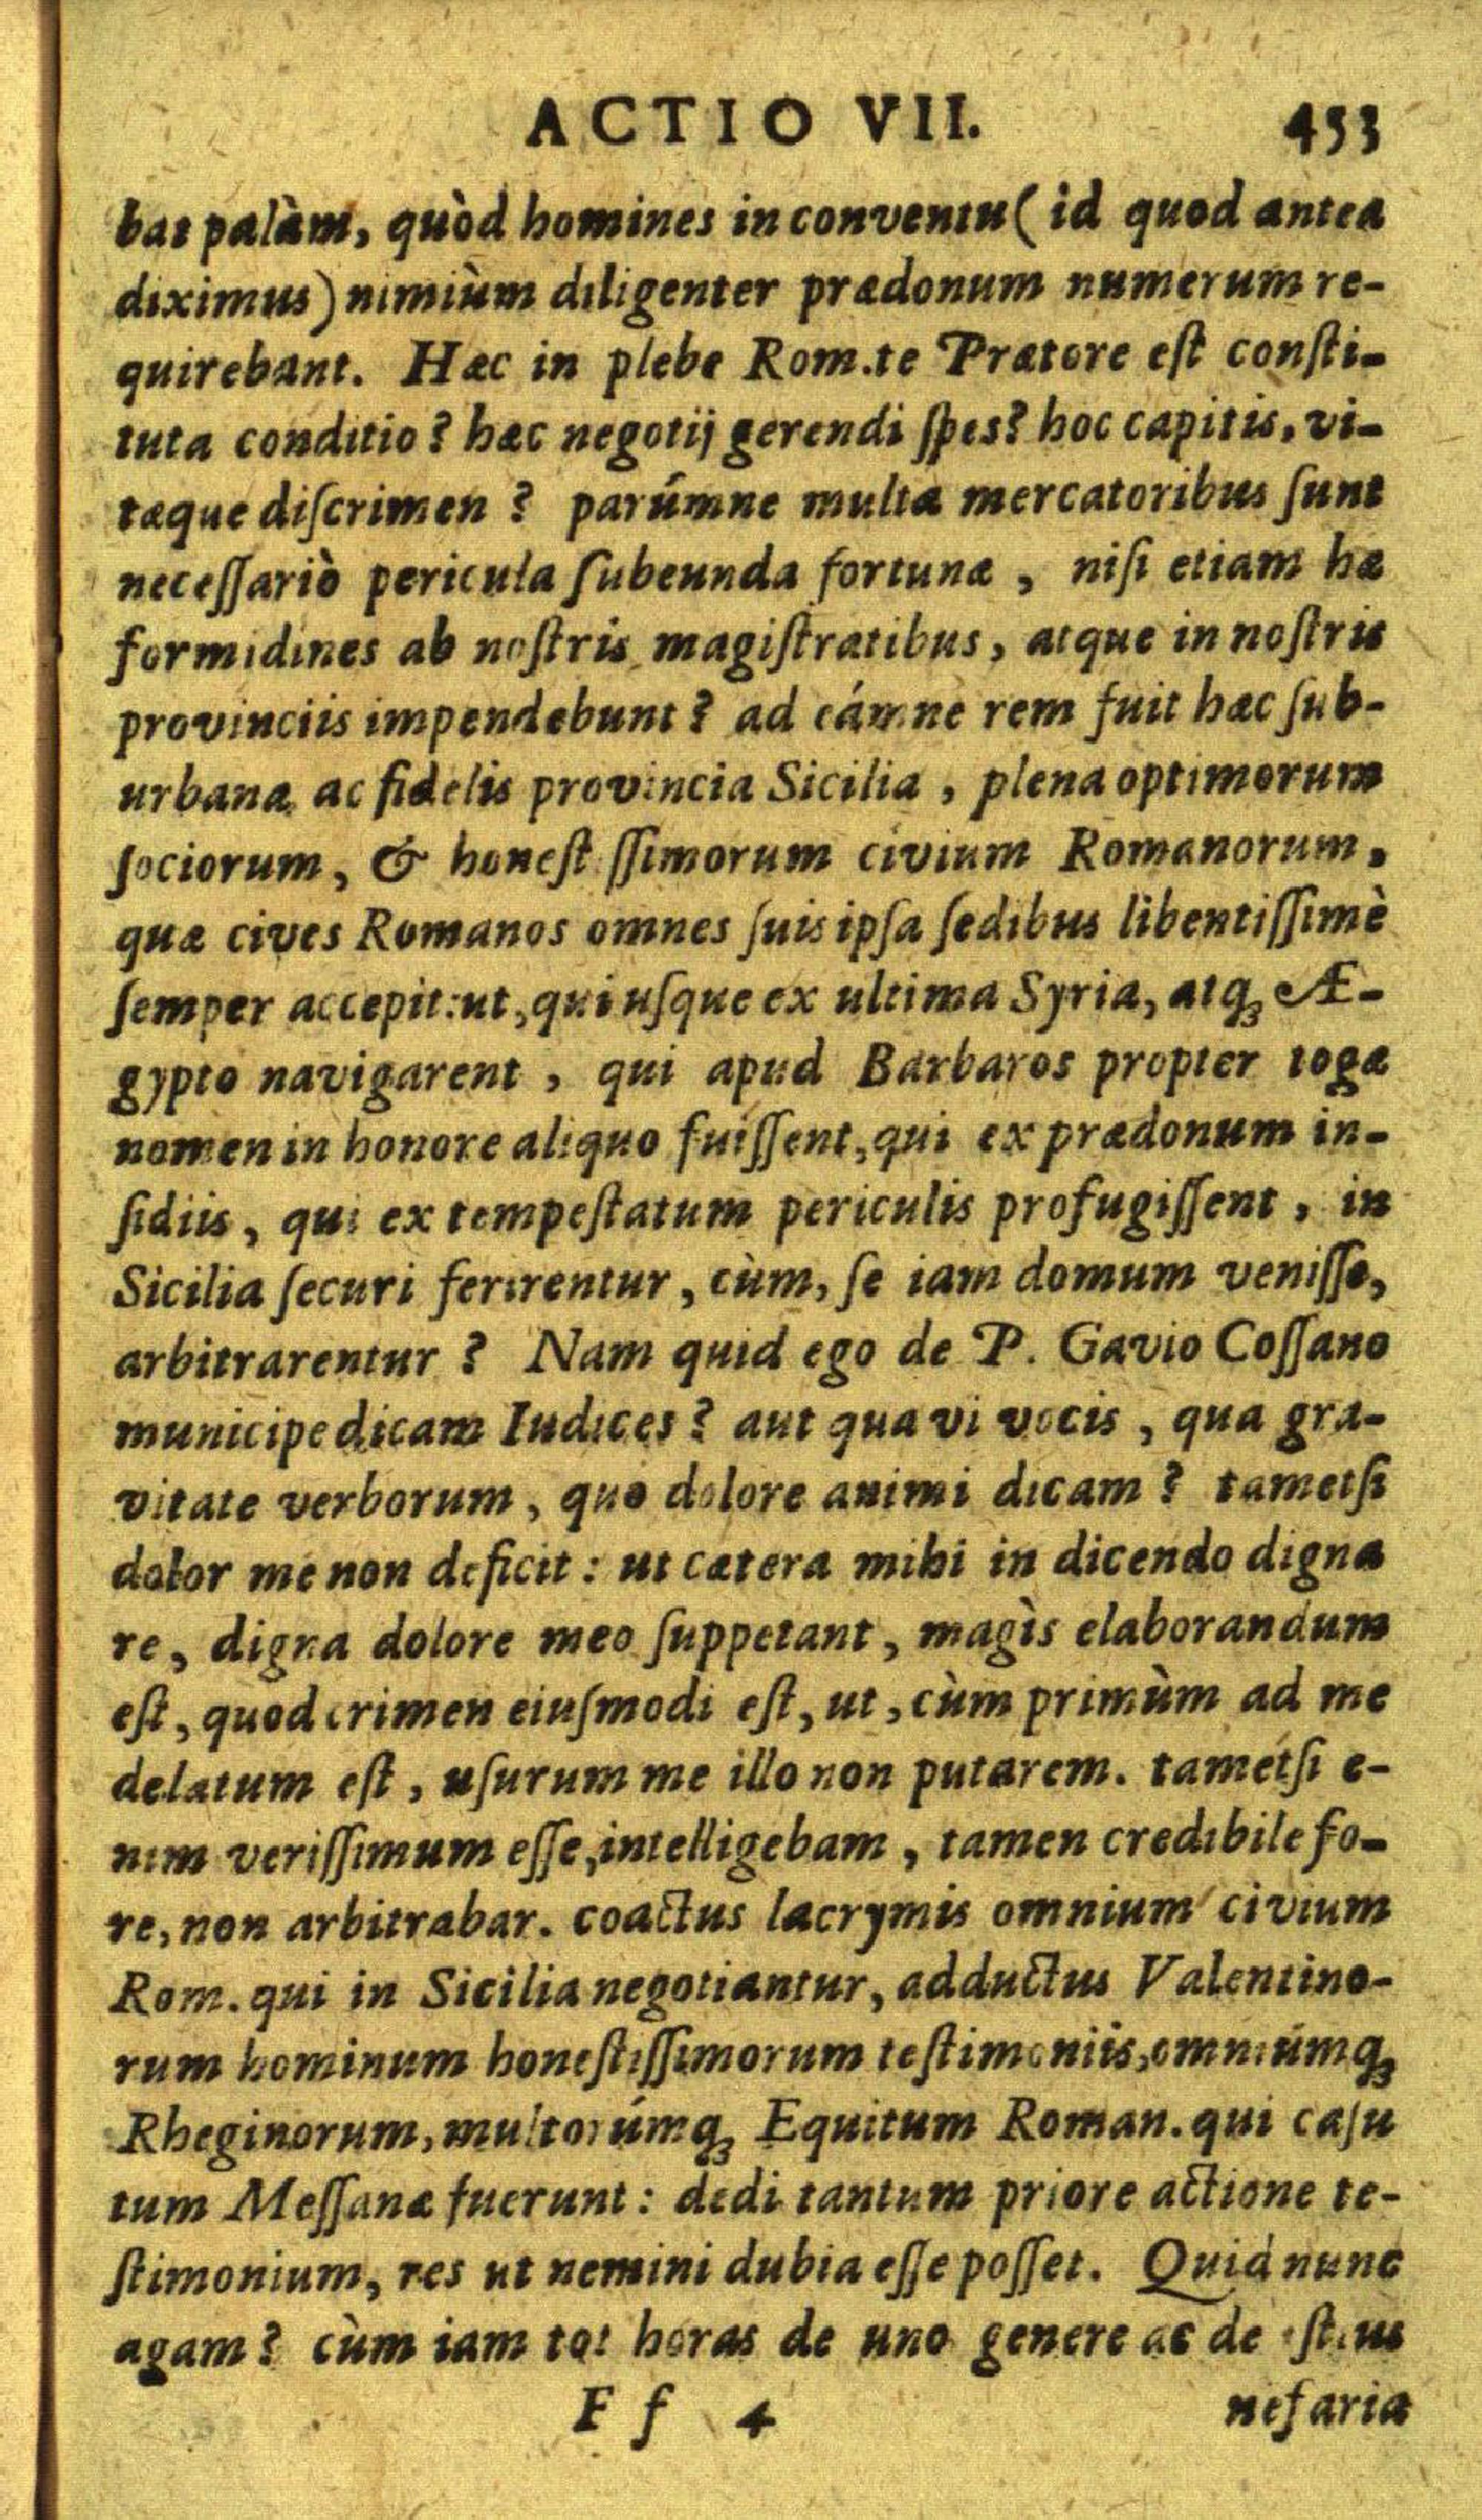 ACTIO VII. 453
bat palàm, quòd homines in conventu (id quod antea
diximus) nimiùm diligenter prædonum numerum re-
quirebant. Hæc in plebe Rom. te Prætore est consti-
tuta conditio? hæc negotij gerendi spes? hoc capitis, vi-
tæque discrimen? parúmne multa mercatoribus sunt
necessariò pericula subeunda fortunæ, nisi etiam hæ
formidines ab nostris magistratibus, atque in nostris
provinciis impendebunt? ad eámne rem fuit hæc sub-
urbana ac fidelis provincia Sicilia, plena optimorum
sociorum, & honestissimorum civium Romanorum,
quæ cives Romanos omnes suis ipsa sedibus libentissimè
semper accepit: ut, qui usque ex ultima Syria, atq; Æ-
gypto navigarent, qui apud Barbaros propter togæ
nomen in honore aliquo fuissent, qui ex prædonum in-
sidiis, qui ex tempestatum periculis profugissent, in
Sicilia securi ferirentur, cùm, se iam domum venisse,
arbitrarentur? Nam quid ego de P. Gavio Cossano
municipe dicam Iudices? aut qua vi vocis, qua gra-
vitate verborum, quo dolore animi dicam? tametsi
dolor me non deficit: ut cætera mihi in dicendo digna
re, digna dolore meo suppetant, magìs elaborandum
est, quod crimen eiusmodi est, ut, cùm primùm ad me
delatum est, usurum me illo non putarem. tametsi e-
nim verissimum esse, intelligebam, tamen credibile fo-
re, non arbitrabar. coactus lacrymis omnium civium
Rom. qui in Sicilia negotiantur, adductus Valentino-
rum hominum honestissimorum testimoniis, omniúmq;
Rheginorum, multorúmq; Equitum Roman. qui casu
tum Messanæ fuerunt: dedi tantum priore actione te-
stimonium, res ut nemini dubia esse posset. Quid nunc
agam? cùm iam tot horas de uno genere ac de istius
F f 4 nefaria